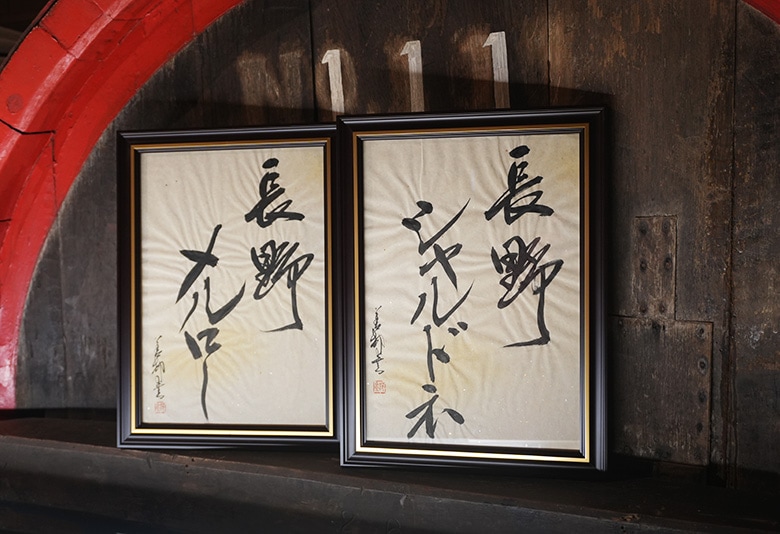 111
長野
メルロー
長野
シャルドネ